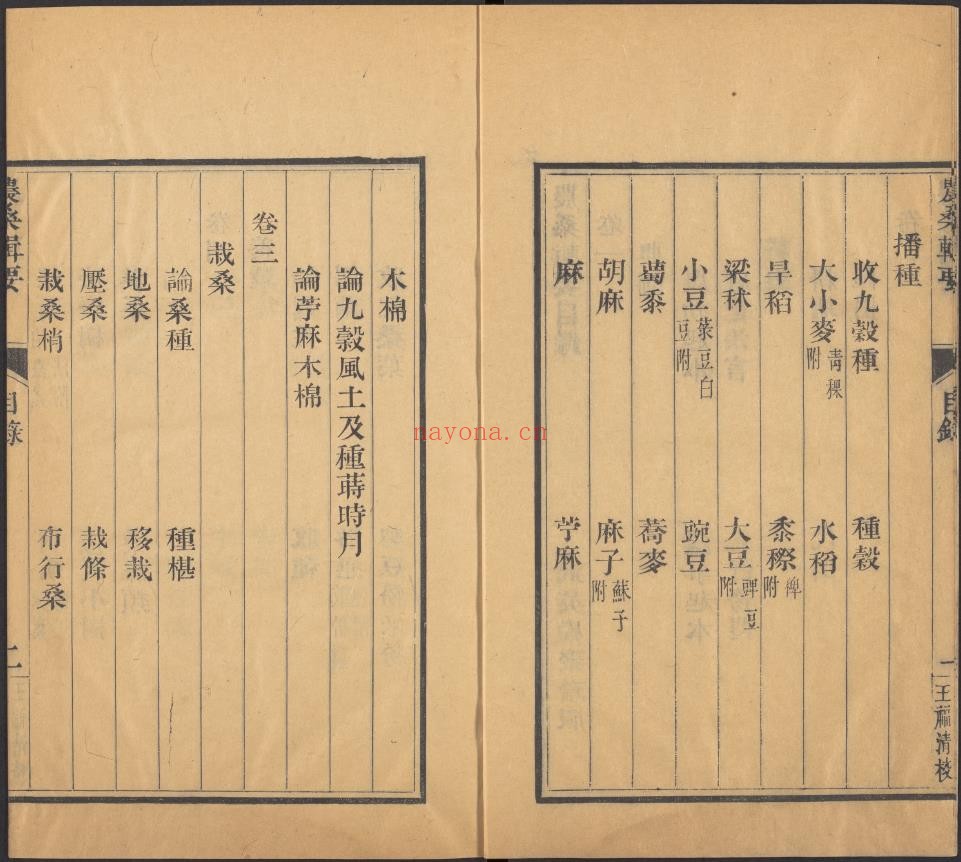 農桑輯要
目錄
二
王福清校
播種
收九穀種 種穀
大小麥青稞附 水稻
旱稻 黍穄稗附
粱秫 大豆䝁豆附
小豆菉豆白豆附 豌豆
蜀黍 蕎麥
胡麻 麻子蘇子附
麻 苧麻
木棉
論九穀風土及種蒔時月
論苧麻木棉
卷三
栽桑
論桑種 種椹
地桑 移栽
壓桑 栽條
栽桑梢 布行桑
農桑輯要
目錄
二
nayona.cn